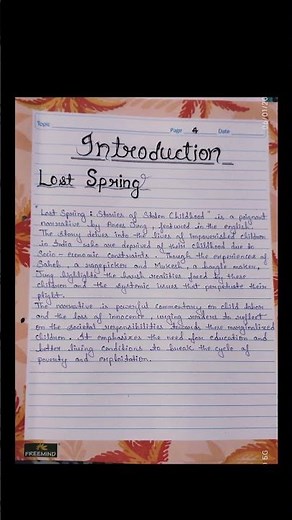 Topic
Page 4 Date
Introduction
Lost Spring
"Lost Spring : Stories of Stolen Childhood" is a poignant
narrative by Anees Jung, featured in the english.
The story delves into the lives of impoverished children
in India who are deprived of their childhood due to
Socio-economic constraints. Though the experiences of
Saheb, a ragepicker and Mukesh, a bangle maker,
Jung highlights the harsh realities faced by these
children and the systemic issues that perpetuate their
plight.
The narrative is powerful commentary on child labor
and the loss of innocence, urging readers to reflect
on the societal responsibilities towards these marginalized
children. It emphasizes the need for education and
better living conditions to break the cycle of
poverty and exploitation.
FREEMIND